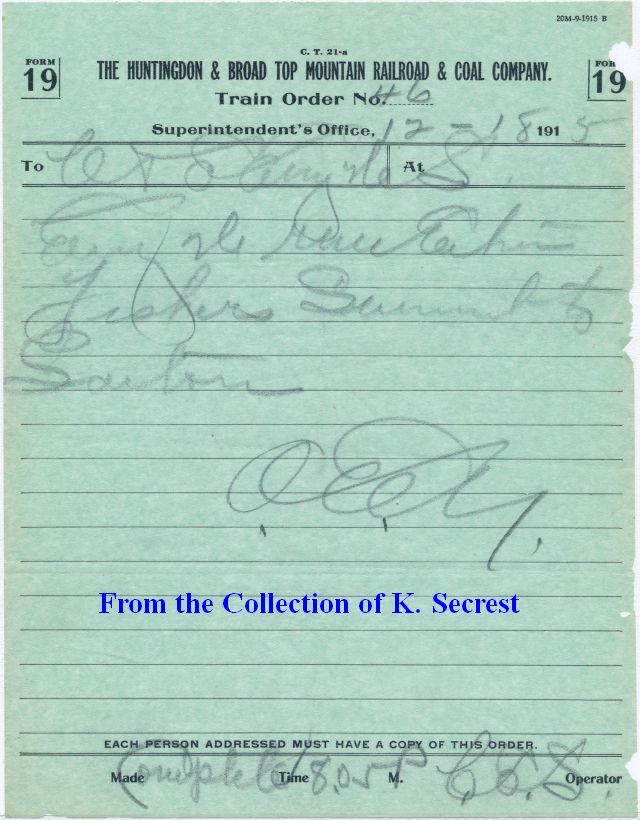 20M-9-1915 B
C. T. 21-a
FORM 19
THE HUNTINGDON & BROAD TOP MOUNTAIN RAILROAD & COAL COMPANY.
FOR 19
Train Order No. 46
Superintendent's Office, 12-18 1915
To C & E Eng S. At
Eng
Fishers Summit to
Saxton
From the Collection of K. Secrest
EACH PERSON ADDRESSED MUST HAVE A COPY OF THIS ORDER.
Made Complete Time 8.05 P M. Operator